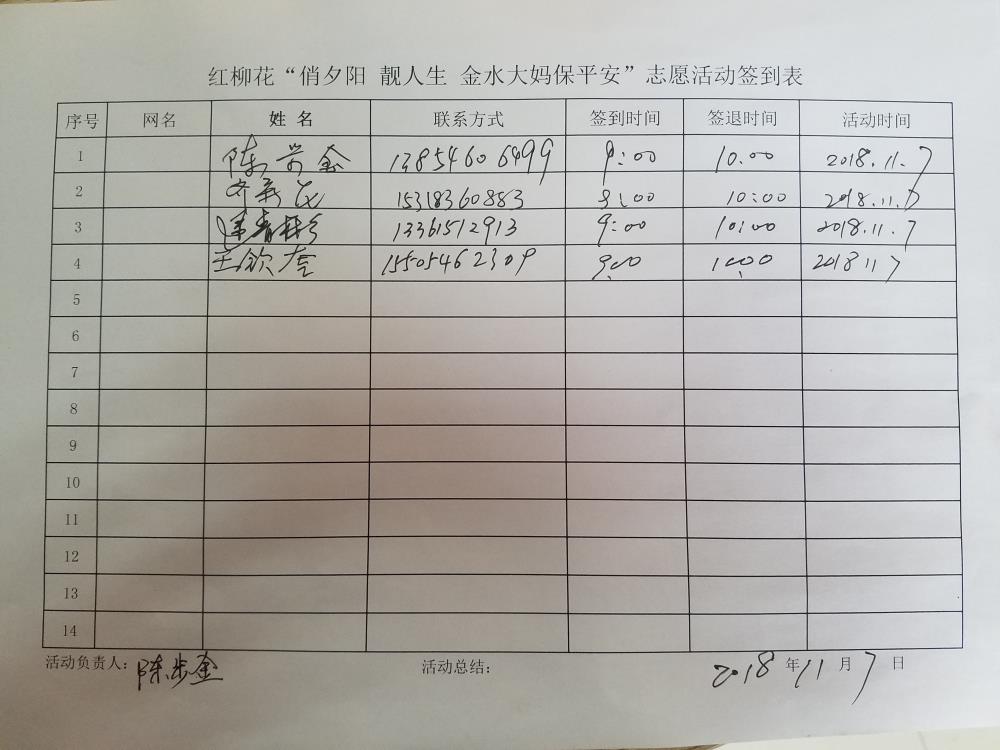 红柳花“俏夕阳 靓人生 金水大妈保平安”志愿活动签到表
序号 网名 姓名 联系方式 签到时间 签退时间 活动时间
1 陈 金 13854606499 9:00 10.00 2018.11.7
2 15318360883 9:00 10:00 2018.11.7
3 13361512913 9:00 10:00 2018.11.7
4 王钦奎 15505462309 9:00 10:00 2018 11 7
5
6
7
8
9
10
11
12
13
14
活动负责人: 陈步金 活动总结: 2018年11月7日